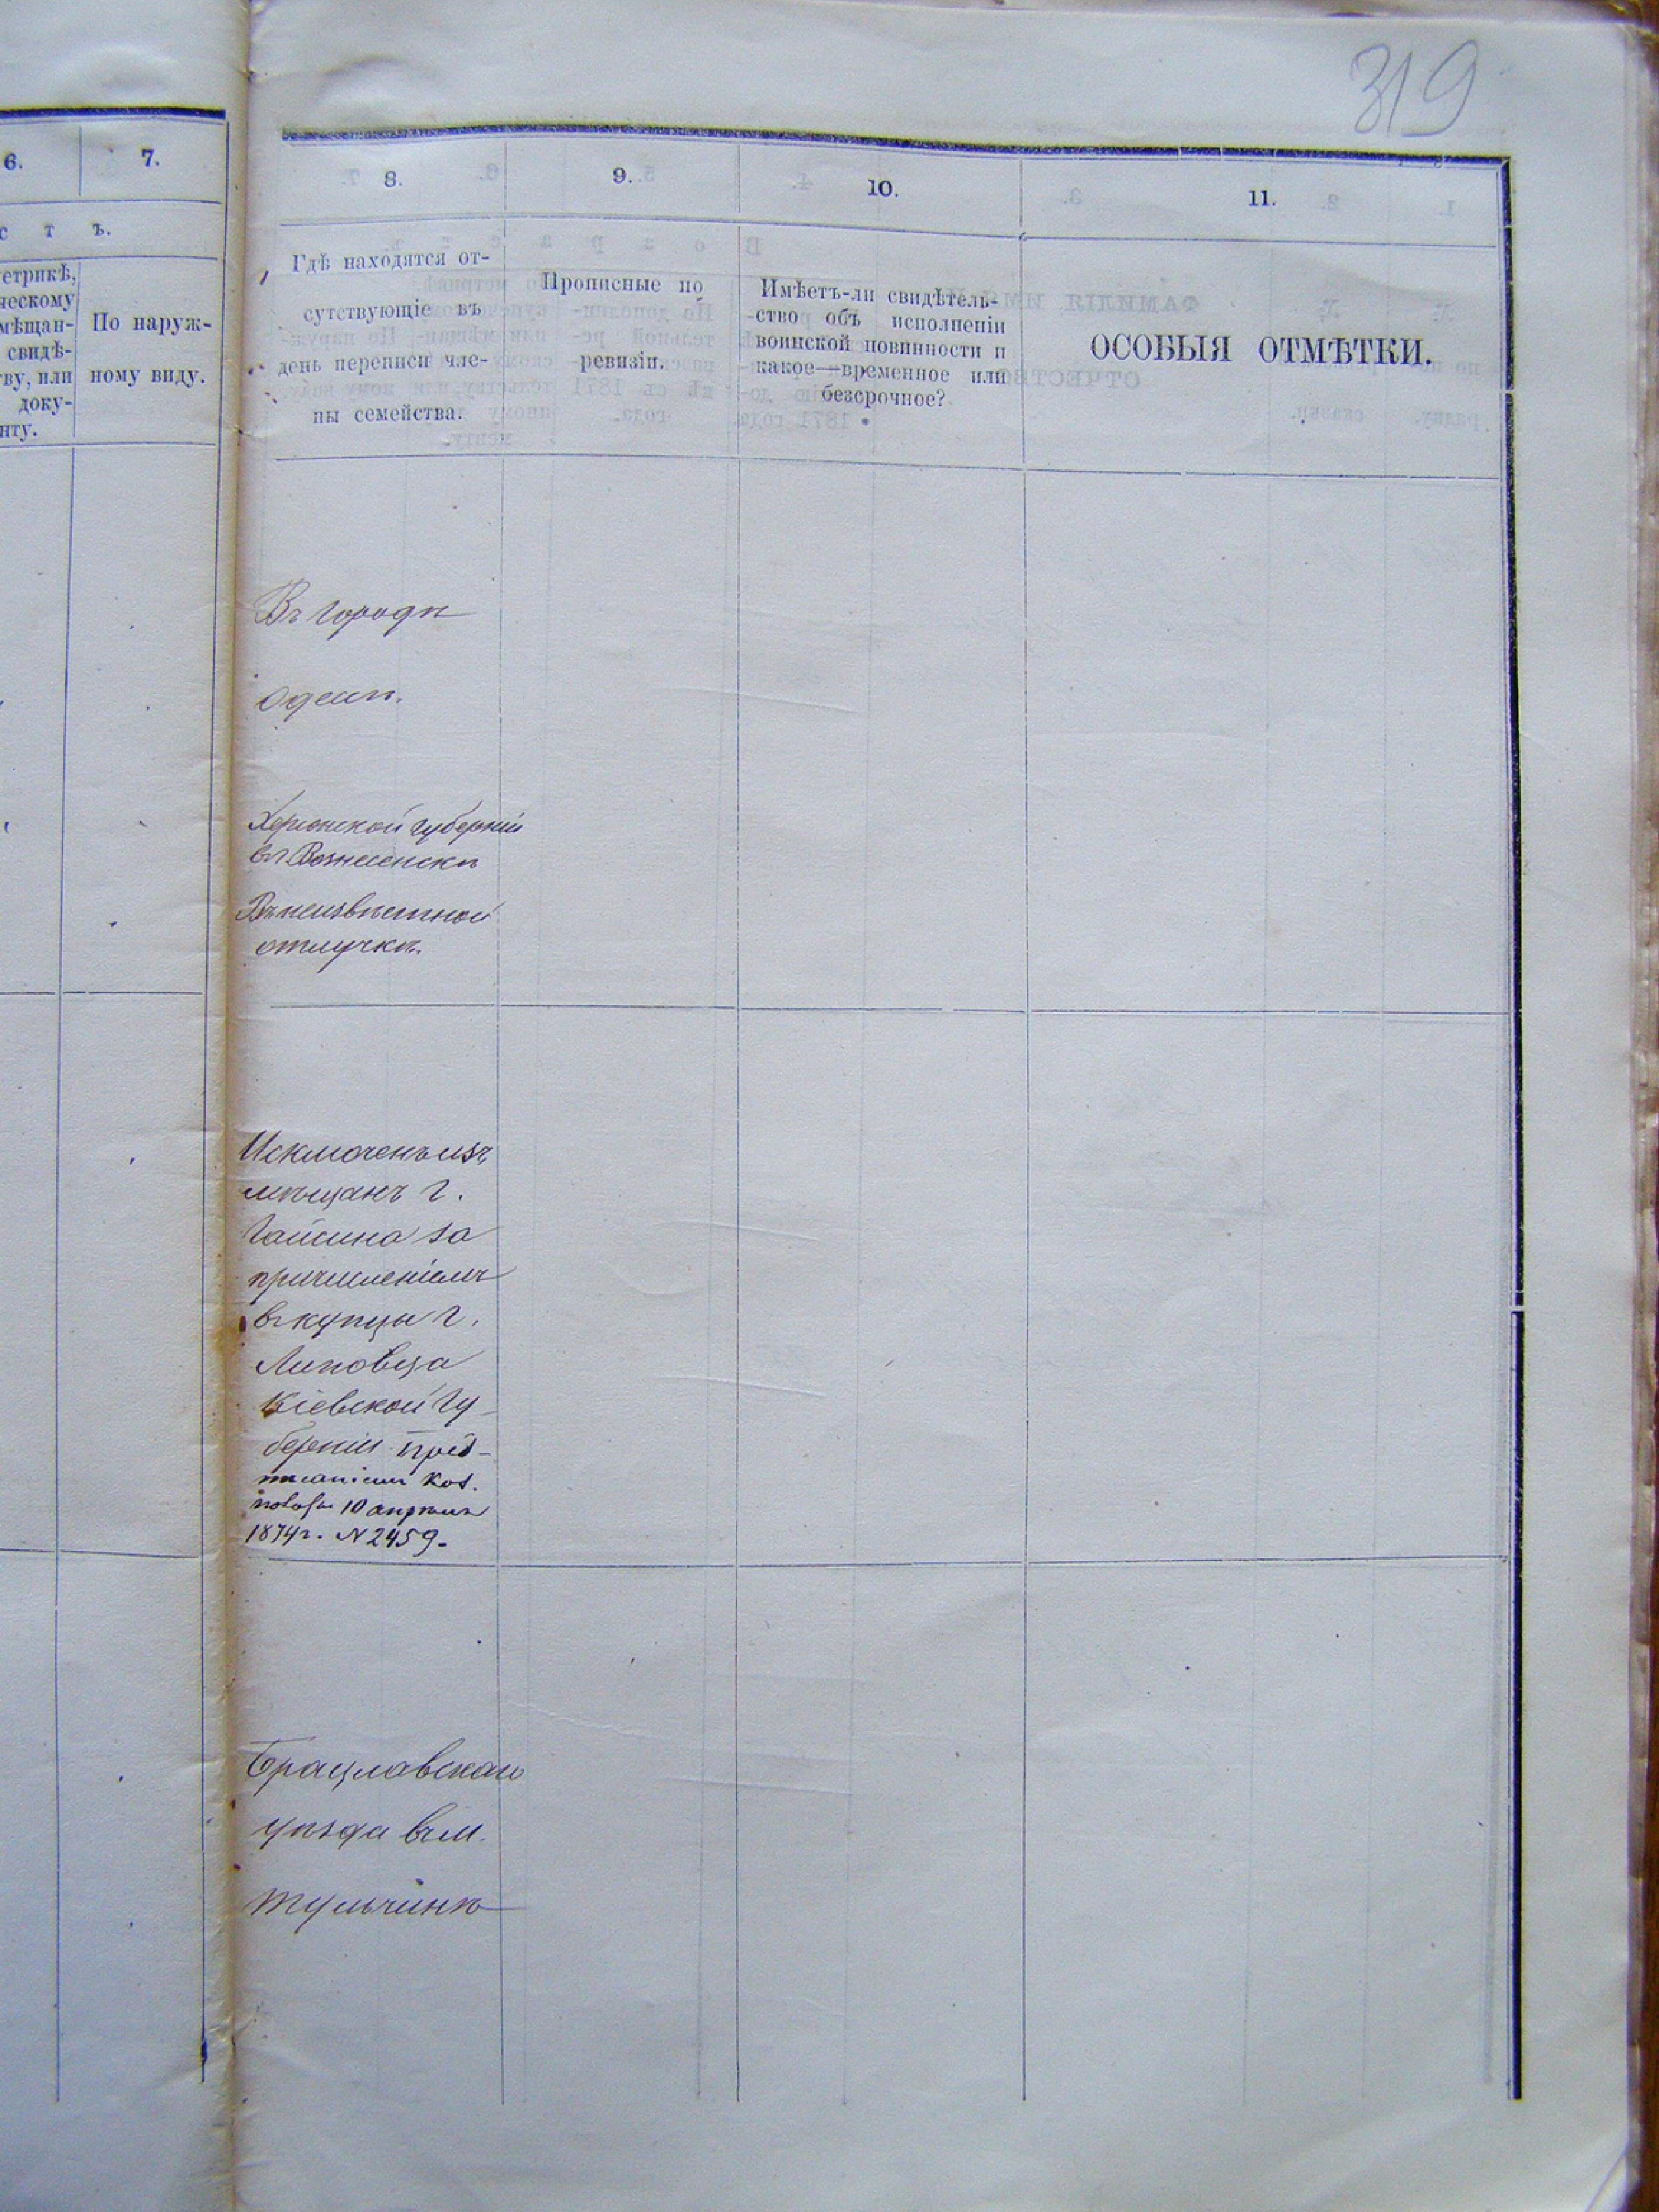 319
6.
7.
8.
9.
10.
11.
с т ъ.
етрикѣ,
ческому
мѣщан-
свидѣ-
ву, или
доку-
нту.
По наруж-
ному виду.
Гдѣ находятся от-
сутствующіе въ
день переписи чле-
ны семейства.
Прописные по
ревизіи.
Имѣетъ-ли свидѣтель-
ство объ исполненіи
воинской повинности и
какое—временное или
безсрочное?
ОСОБЫЯ ОТМѢТКИ.
Въ городѣ
Одесѣ.
Херсонской губерніи
въ Вознесенскѣ
Въ неизвѣстной
отлучкѣ.
Исключенъ изъ
мѣщанъ г.
Гайсина за
причисленіемъ
въ купцы г.
Липовца
Кіевской Гу-
берніи пред-
писаніемъ Каз.
10 апрѣля
1874 г. N 2459.
Брацлавскаго
уѣзда въ м.
Тульчинѣ